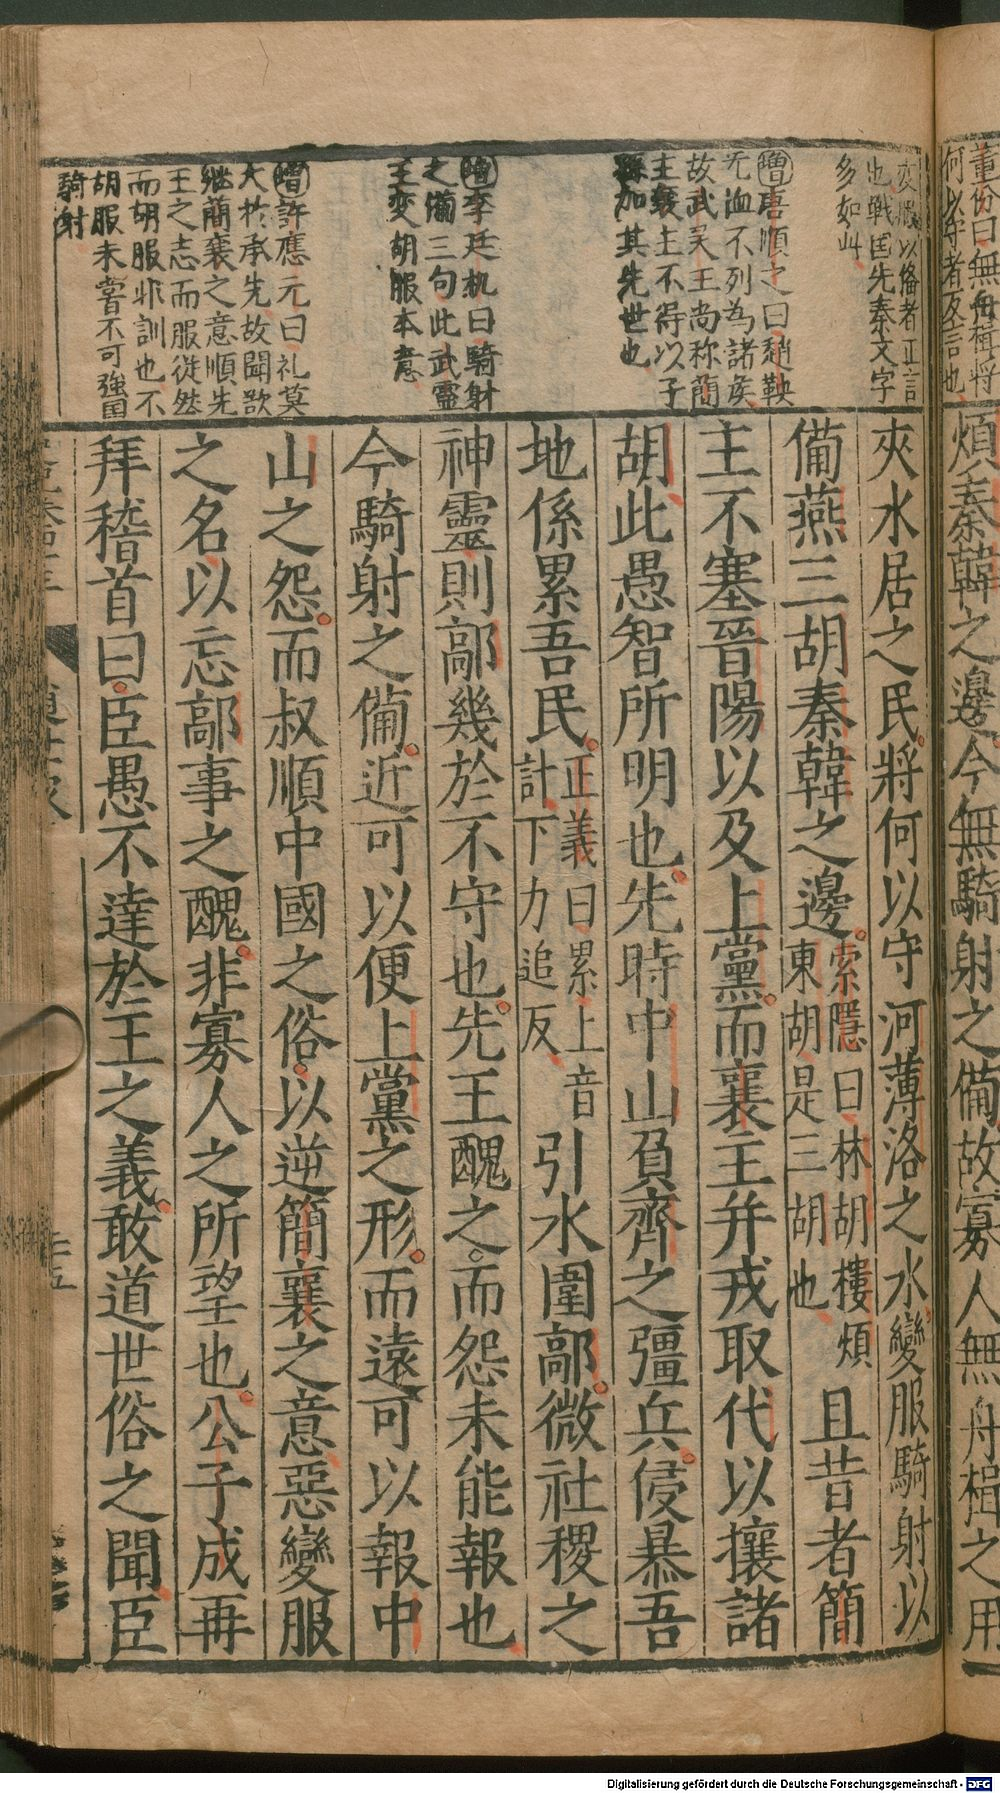 董份曰無舟楫將
何以守者反言也
煩秦韓之邊今無騎射之備故寡人無舟楫之用
変服以俻者正言
也戰国先秦文字
多如此
增唐順之曰趙鞅
无恤不列為諸矦
故武灵王尚称簡
主襄主不得以子
孫加其先世也
增李廷机曰騎射
之備三句此武靈
王变胡服本意
增許應元曰礼莫
大扵承先故聞欲
継簡襄之意順先
王之志而服従然
而胡服非訓也不
胡服未嘗不可強国
騎射
夾水居之民將何以守河薄洛之水變服騎射以
備燕三胡秦韓之邊索隱曰林胡樓煩東胡是三胡也且昔者簡
主不塞晉陽以及上黨而襄主并戎取代以攘諸
胡此愚智所明也先時中山負齊之彊兵侵暴吾
地係累吾民正義曰累上音計下力追反引水圍鄗微社稷之
神靈則鄗幾於不守也先王醜之而怨未能報也
今騎射之備近可以便上黨之形而遠可以報中
山之怨而叔順中國之俗以逆簡襄之意惡變服
之名以忘鄗事之醜非寡人之所望也公子成再
拜稽首曰臣愚不達於王之義敢道世俗之聞臣
Digitalisierung gefördert durch die Deutsche Forschungsgemeinschaft - DFG